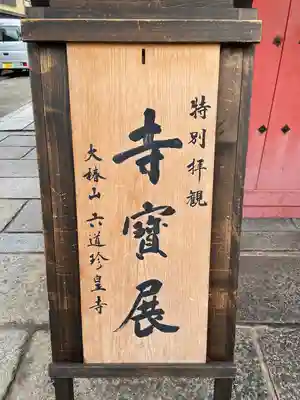 特別拝観
寺寳展
大椿山 六道珍皇寺